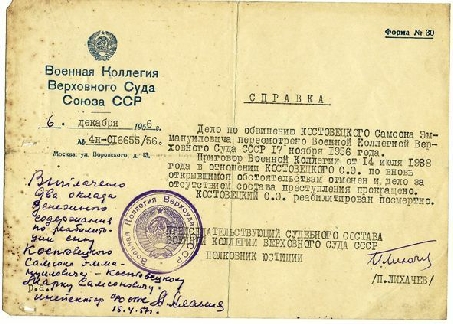 Форма № 30
Военная Коллегия
Верховного Суда
Союза ССР
6 декабря 1956 г.
№ 4н-СI6655/56.
Москва, ул. Воровского, д. 13.
СПРАВКА
Дело по обвинению КОСТОВЕЦКОГО Самсона Эм-
мануиловича пересмотрено Военной Коллегией Вер-
ховного Суда СССР 17 ноября 1956 года.
Приговор Военной Коллегии от 14 июля 1938
года в отношении КОСТОВЕЦКОГО С.Э. по вновь
открывшимся обстоятельствам отменен и дело за
отсутствием состава преступления прекращено.
КОСТОВЕЦКИЙ С.Э. реабилитирован посмертно.
ПРЕДСЕДАТЕЛЬСТВУЮЩИЙ СУДЕБНОГО СОСТАВА
ВОЕННОЙ КОЛЛЕГИИ ВЕРХОВНОГО СУДА СССР
ПОЛКОВНИК ЮСТИЦИИ
/П.ЛИХАЧЕВ/
Выплачено
два оклада
денежного
содержания
по
сыну
Костовецкого
Самсона Эмма-
нуиловича - Костовецкому
Марку Самсоновичу.
инспектор